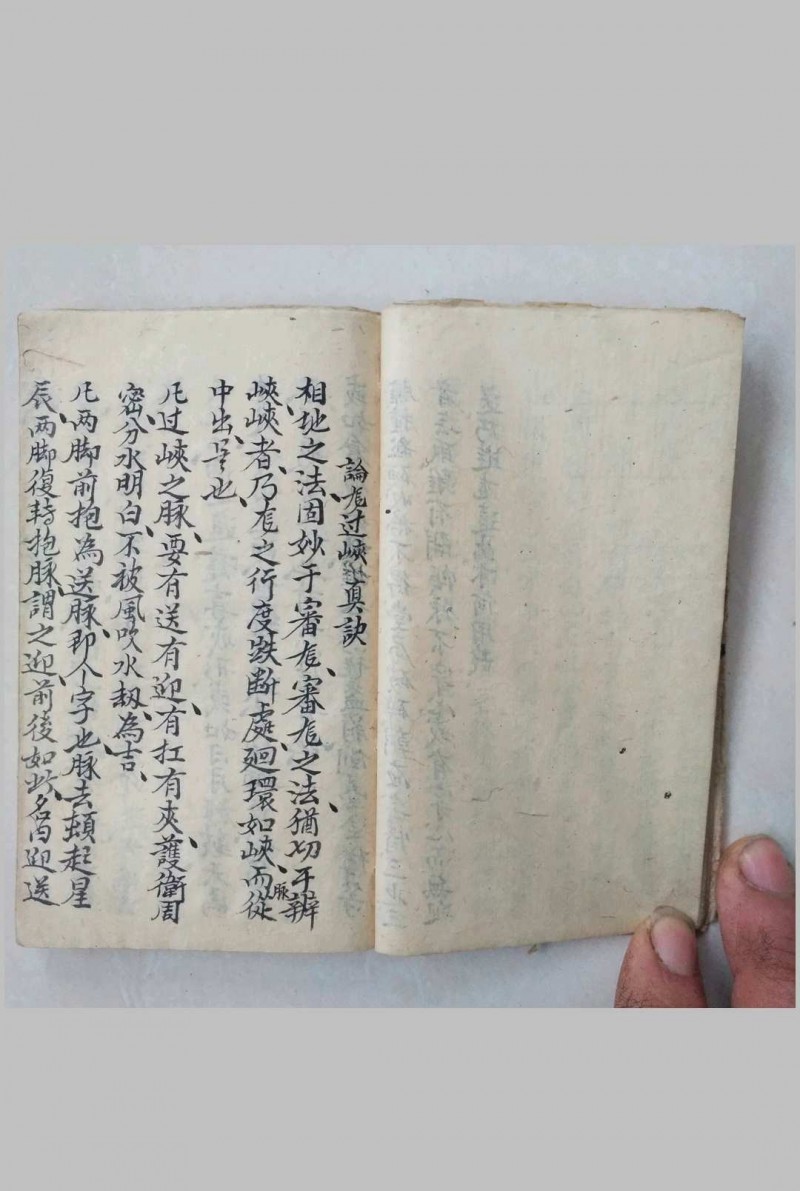 論龙过峽真訣
相地之法固妙于審龙審龙之法猶切乎辨
峽峽者乃龙之行度跌断處廻環如峽而脉從
中出是也
凡过峽之脉要有送有迎有扛有夾護衛周
密分水明白不被風吹水刼為吉
凡两脚前抱為送脉即个字也脉去頓起星
辰两脚復轉抱脉謂之迎前後如此名曰迎送